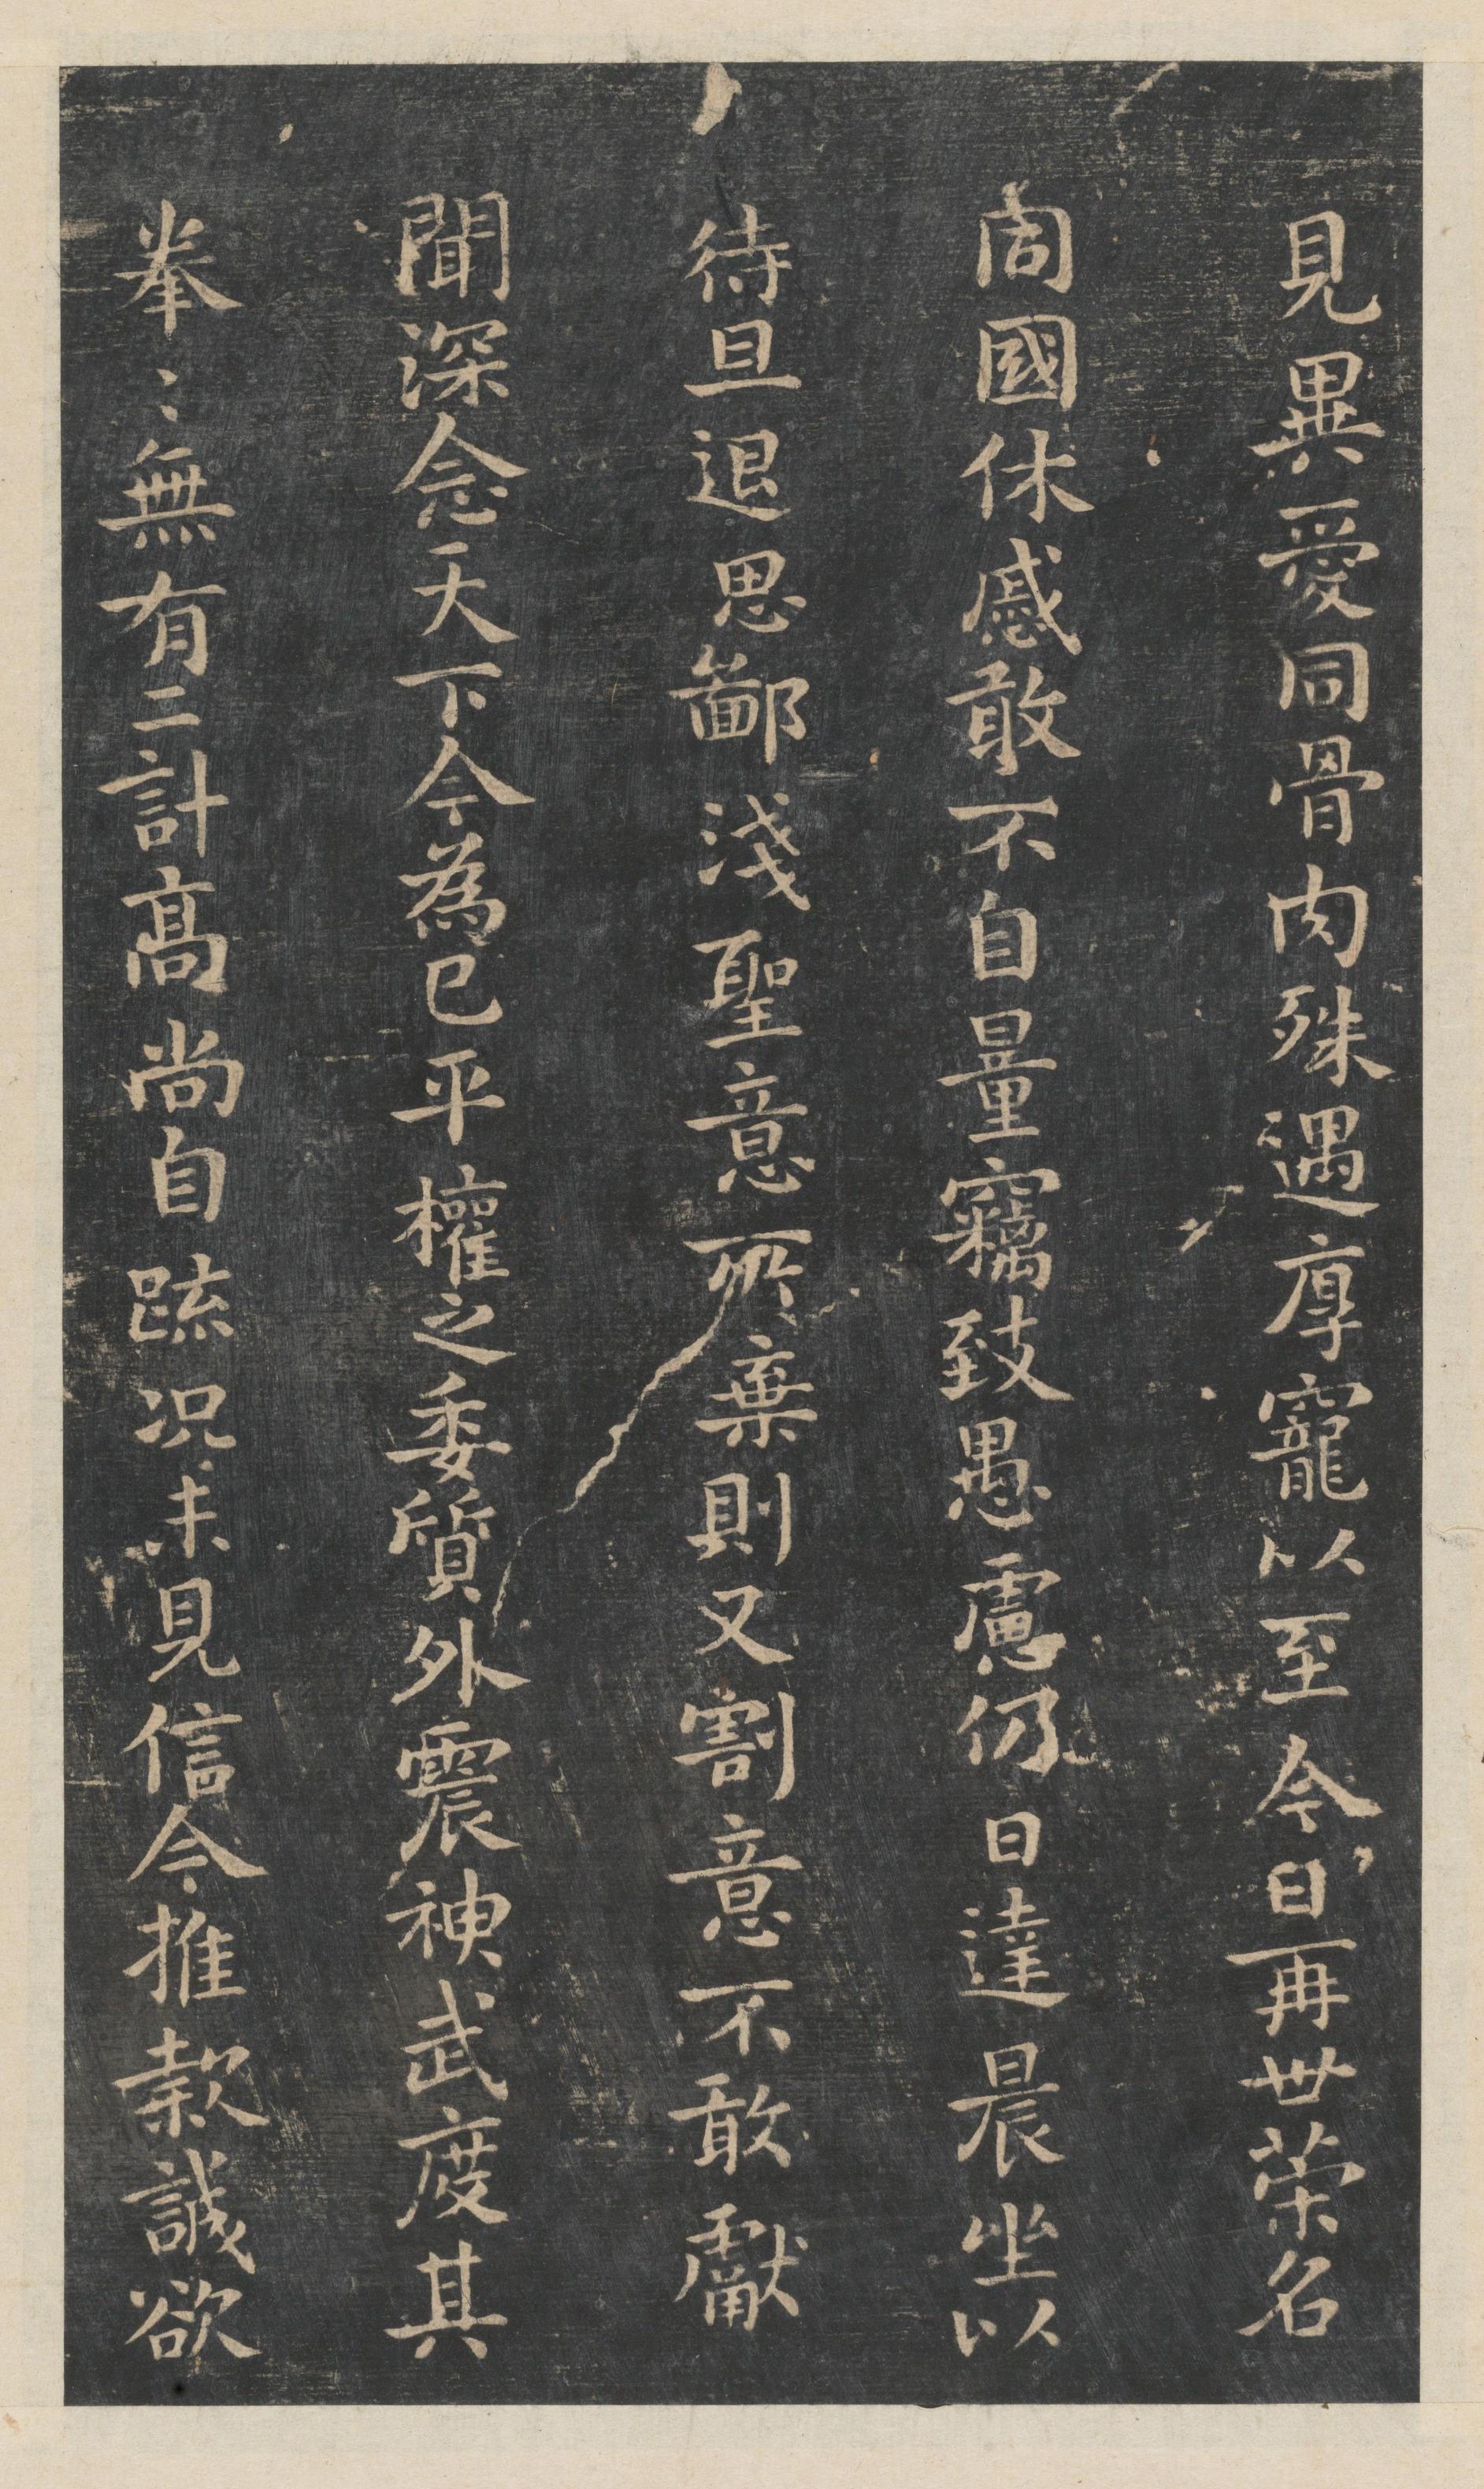 見異愛同骨肉殊遇厚寵以至今日再世榮名
同國休慼敢不自量竊致愚慮仍日達晨坐以
待旦退思鄙淺聖意所棄則又割意不敢獻
聞深念天下今為已平權之委質外震神武度其
拳〻無有二計高尚自疏況未見信今推款誠欲